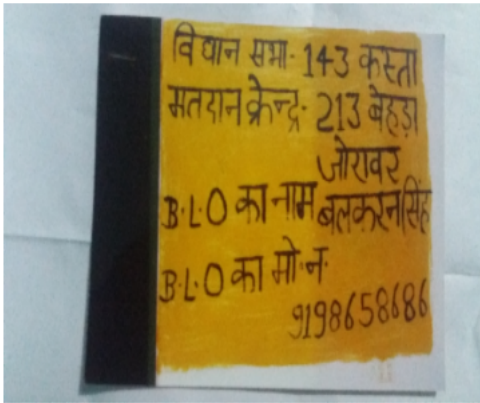 विधान सभा- 143 कस्ता
मतदान केन्द्र- 213 बेहड़ा
जोरावर
B.L.O का नाम बलकरन सिंह
B.L.O का मो.न.
9198658686